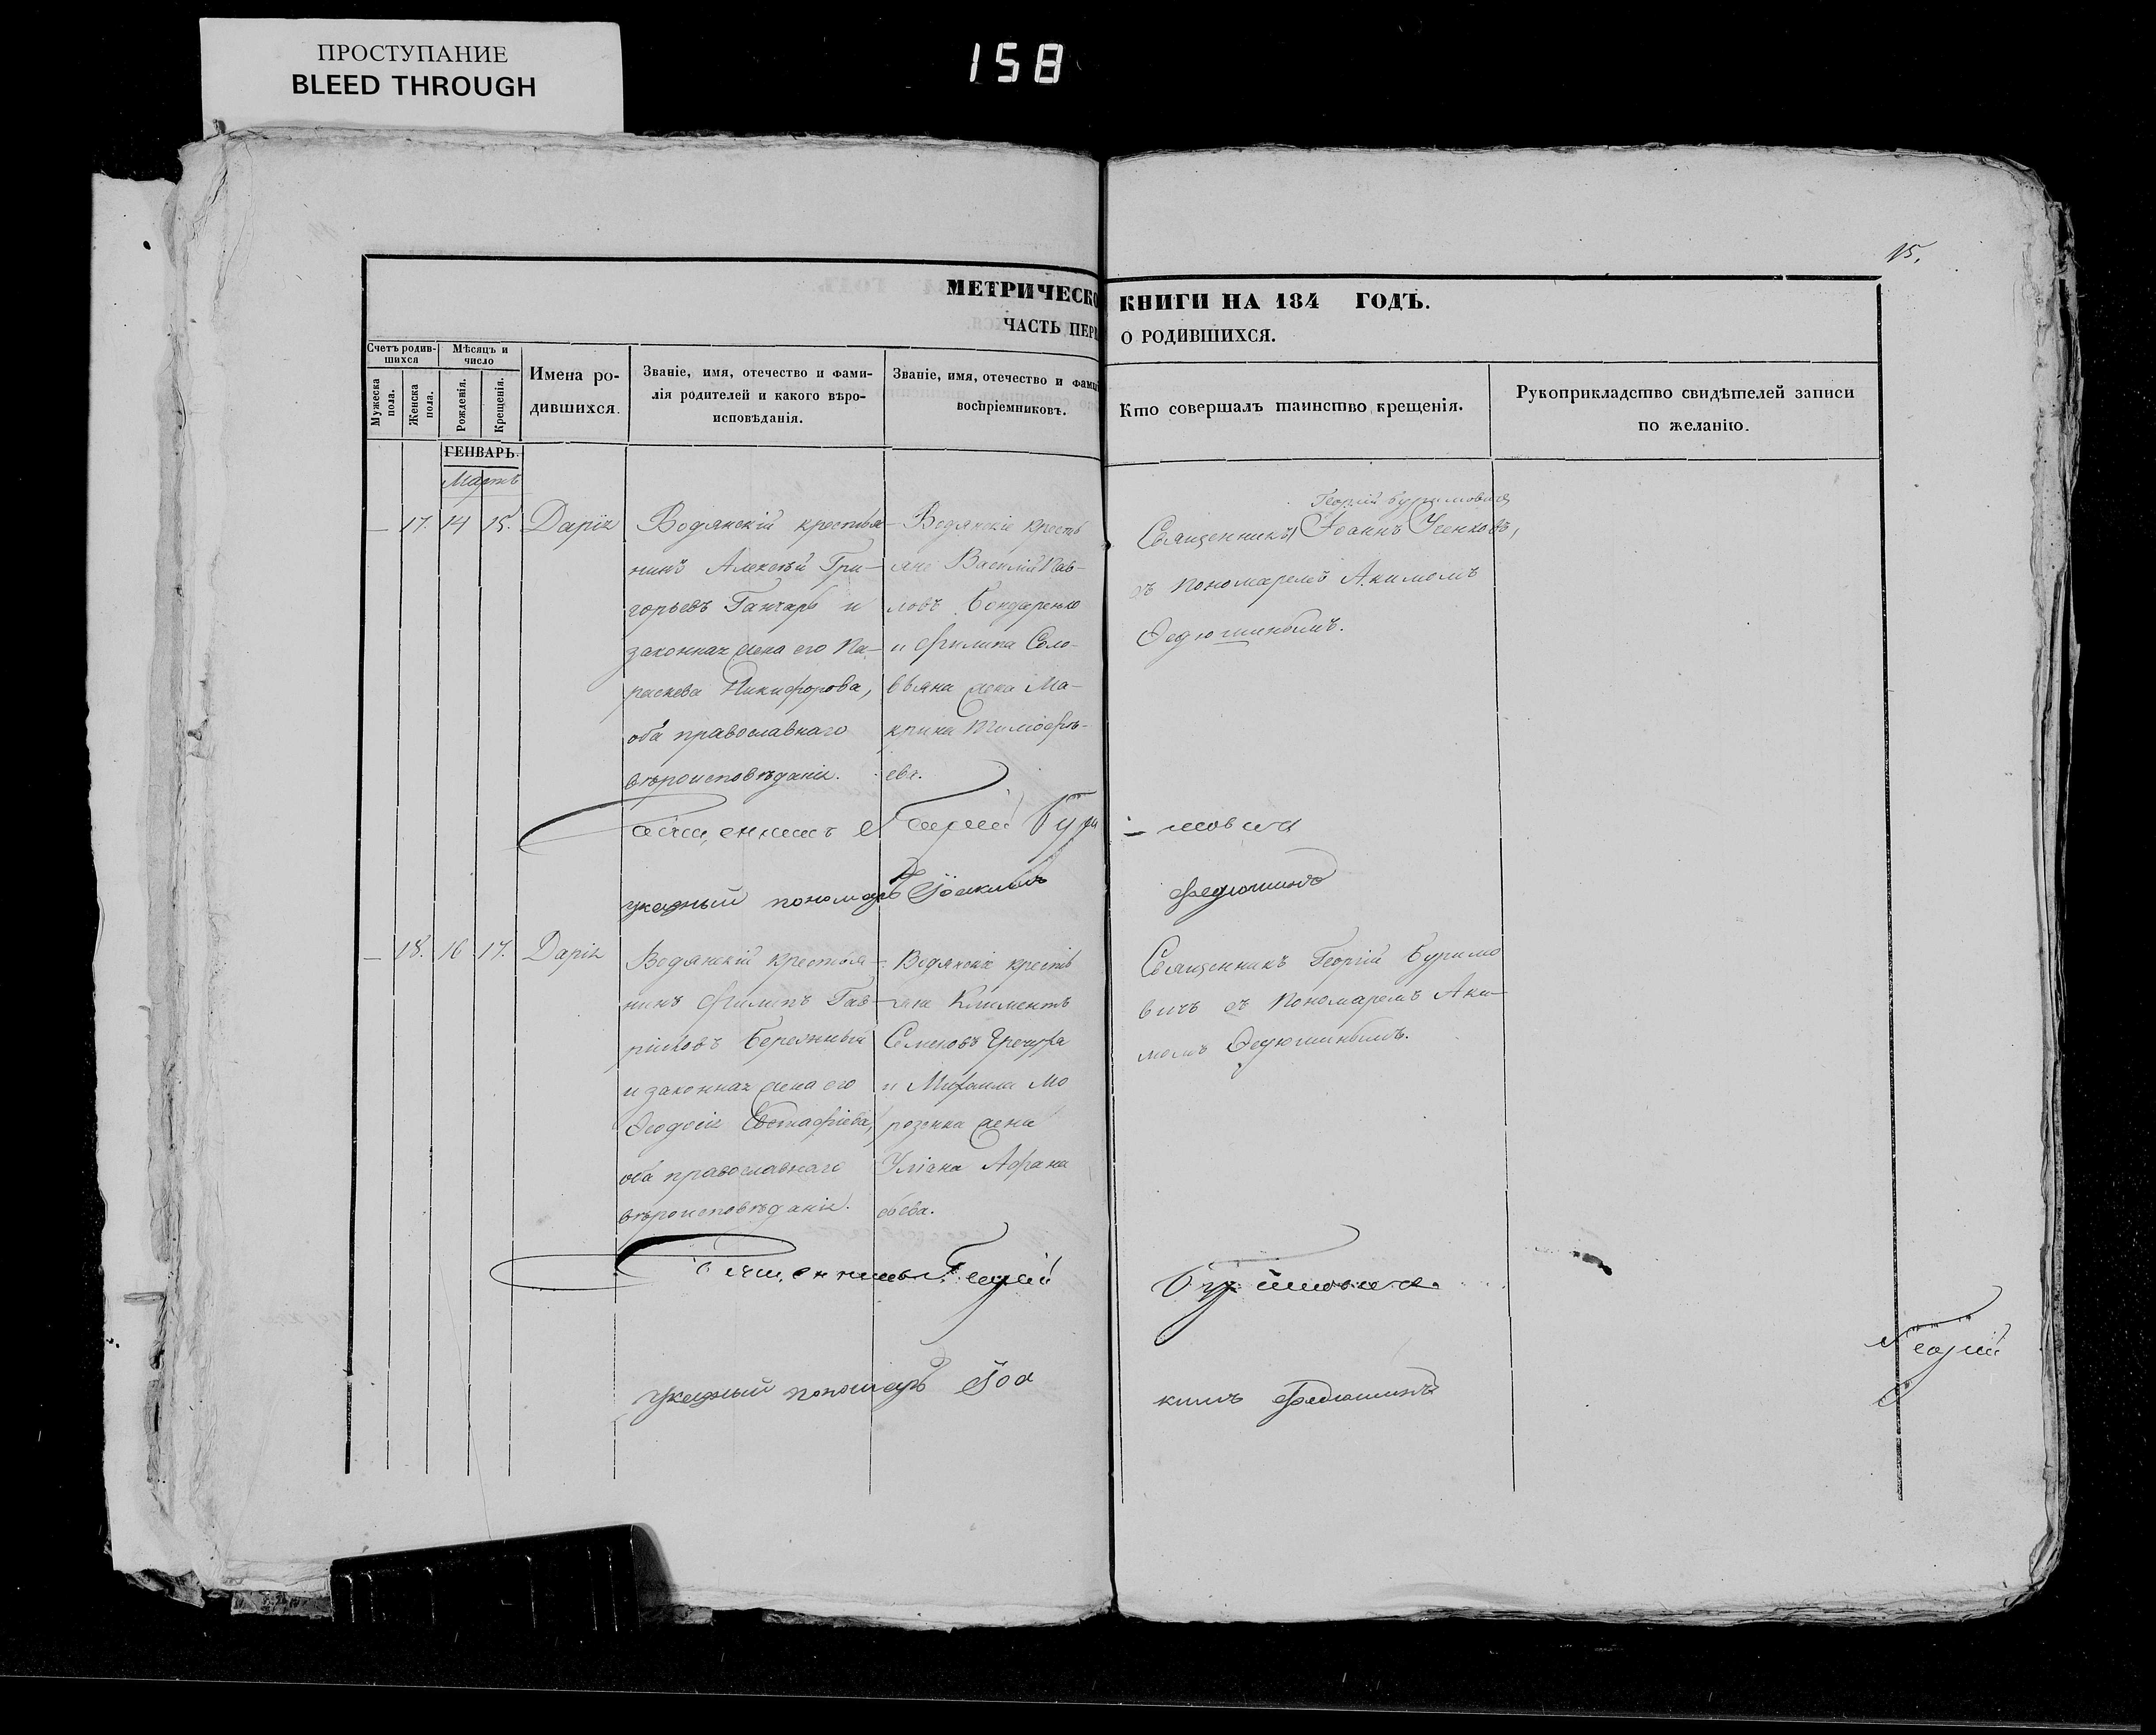 ПРОСТУПАНИЕ
BLEED THROUGH
158
15.
МЕТРИЧЕСКО КНИГИ НА 184 ГОДЪ.
ЧАСТЬ ПЕРВ О РОДИВШИХСЯ.
Счетъ родив-
шихся
Мужеска пола.
Женска пола.
Мѣсяцъ и
число
Рожденія.
Крещенія.
Имена ро-
дившихся.
Званіе, имя, отечество и фами-
лія родителей и какого вѣро-
исповѣданія.
Званіе, имя, отечество и фами
воспріемниковъ.
Кто совершалъ таинство крещенія.
Рукоприкладство свидѣтелей записи
по желанію.
ГЕНВАРЬ.
Мартъ
— 17. 14 15. Дарія
Водянскій крестья-
нинъ Алексѣй Гри-
горьевъ Ганчаръ и
законная жена его Па-
раскева Никифорова,
оба православнаго
вѣроисповѣданія.
Водянскіе кресть
яне Василій Пав-
ловъ Бондаренко
и Филипа Соло-
вьяна жена Ма-
крина Тимофѣ-
ева.
Георгій Буримовичъ
Священникъ Іоаннъ Усенковъ,
съ пономаремъ Акимомъ
Ѳедюшинымъ.
Священникъ Георгій Бури-
мовичъ
указный пономарь Іоакимъ Федюшинъ
— 18. 16 17. Дарія
Водянскій крестья-
нинъ Филипъ Гав-
риловъ Бережный
и законная жена его
Ѳеодосія Евстафіева,
оба православнаго
вѣроисповѣданія.
Водянскіе кресть
яне Климентъ
Семеновъ Гречура
и Михаила Мо
розенка жена
Уліана Афана
сьева.
Священникъ Георгій Буримо
вичъ съ пономаремъ Аки-
момъ Ѳедюшинымъ.
Священникъ Георгій Буримовичъ
указный пономарь Іоа кимъ Федюшинъ
Георгій